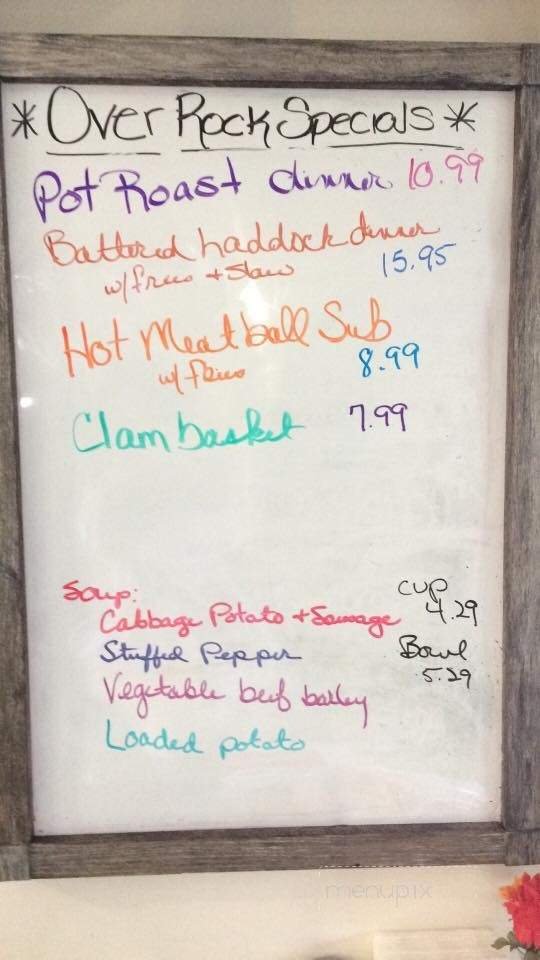 *Over Rock Specials*
Pot Roast dinner 10.99
Battered haddock dinner
w/fries + slaw 15.95
Hot Meatball Sub
w/fries 8.99
Clam basket 7.99
Soup: cup
Cabbage Potato + Sausage 4.29
Stuffed Pepper Bowl
5.29
Vegetable beef barley
Loaded potato
menupix